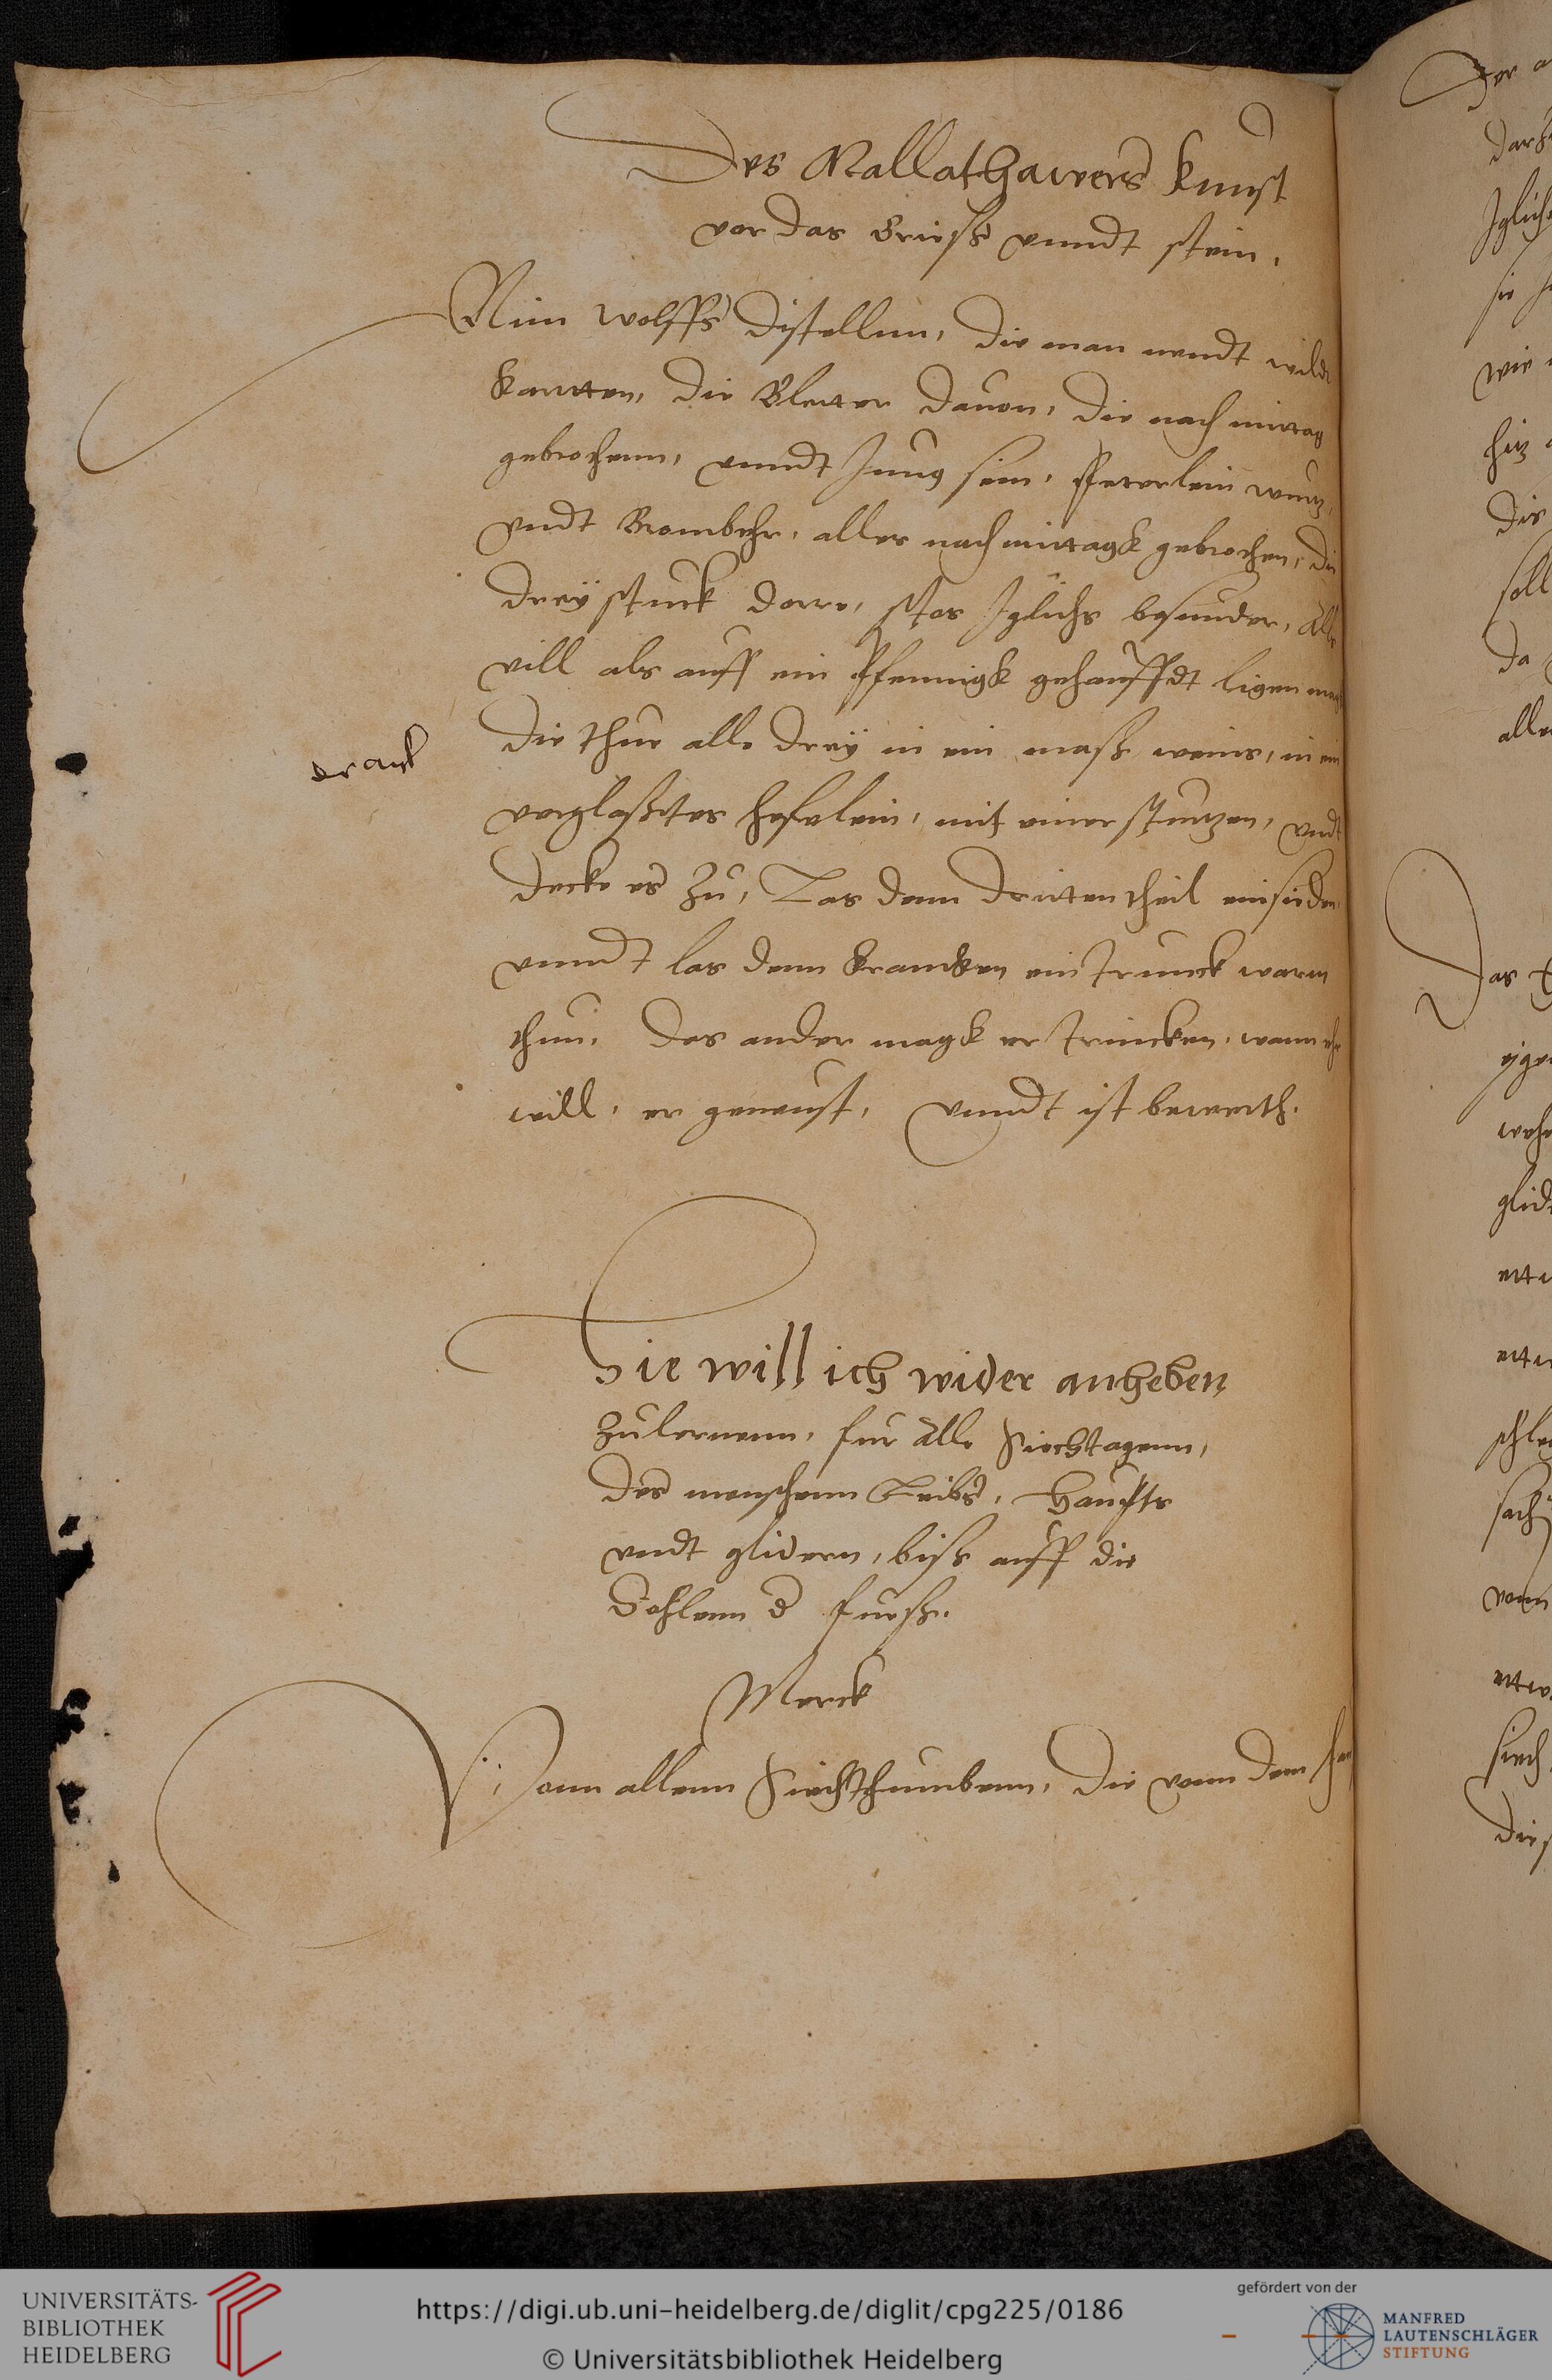 Des Rallathawers kunst
vor das Grieß vnndt stein.
Nim wolffs distellnn, die man nendt wilde
kartten, die Bletter dauon, die nach mittag
gebrochenn, vnndt Jung sein, Peterlein wurtz,
vndt Brombehr, alles nachmittagk gebrochen, die
drey stuck dorre, stos Jglichs besunder, Alls
vill als auff ein Pfennigk gehauffdt ligen mag
die thue alle drey in ein maß weins, in ein
verglaßetes hefelein, mit einer sturtzen, vndt
decke es zu, Las denn dritten theil einsieden
vnndt las denn krancken ein trunck warm
thun. das ander magk er trincken, wann ehr
will, er geneust, vnndt ist bewerth.
Hie will ich wider anheben
zulernenn, fur alle Siechtagenn,
des menschenn Leibs, Haupts
vndt glidern, biß auff die
Sohlenn d fueß.
Merck
Vonn allenn Siechthumbenn, die vonn dem
Der
sie
wie
die
soll
da
alle
Das
vonn
UNIVERSITÄTS-
BIBLIOTHEK
HEIDELBERG
https://digi.ub.uni-heidelberg.de/diglit/cpg225/0186
© Universitätsbibliothek Heidelberg
gefördert von der
MANFRED
LAUTENSCHLÄGER
STIFTUNG